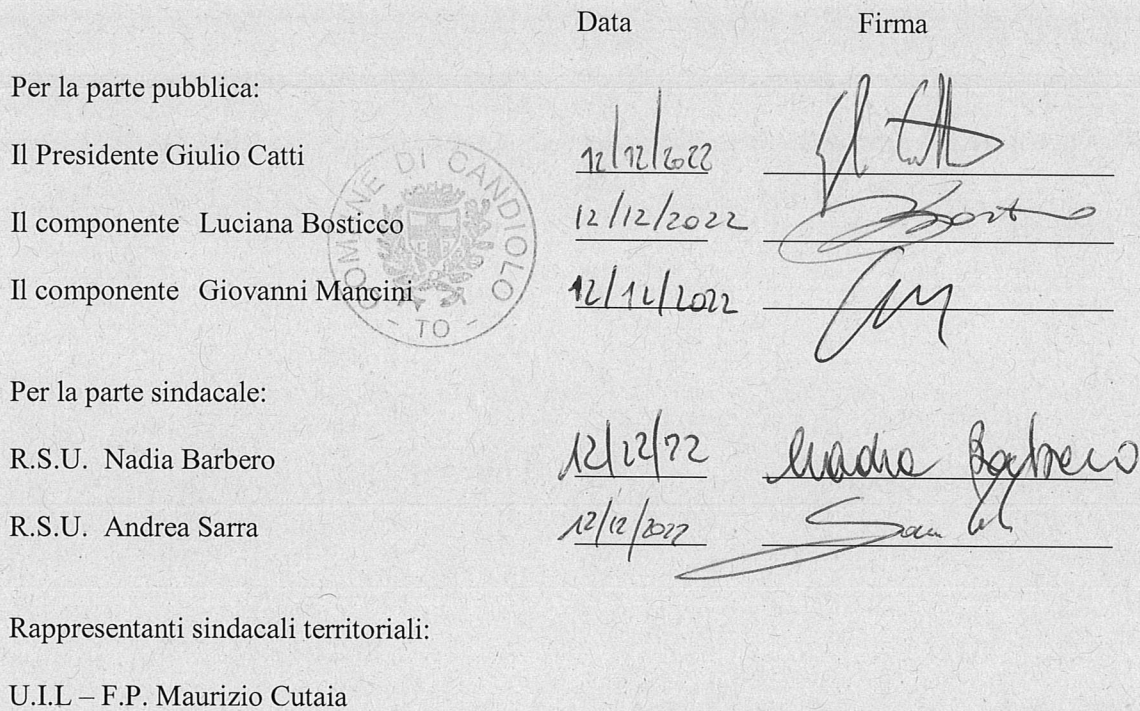 Data Firma
Per la parte pubblica:
Il Presidente Giulio Catti 12/12/2022
Il componente Luciana Bosticco 12/12/2022
Il componente Giovanni Mancini 12/12/2022
COMUNE DI CANDIOLO
- TO -
Per la parte sindacale:
R.S.U. Nadia Barbero 12/12/22 Nadia Barbero
R.S.U. Andrea Sarra 12/12/2022
Rappresentanti sindacali territoriali:
U.I.L – F.P. Maurizio Cutaia